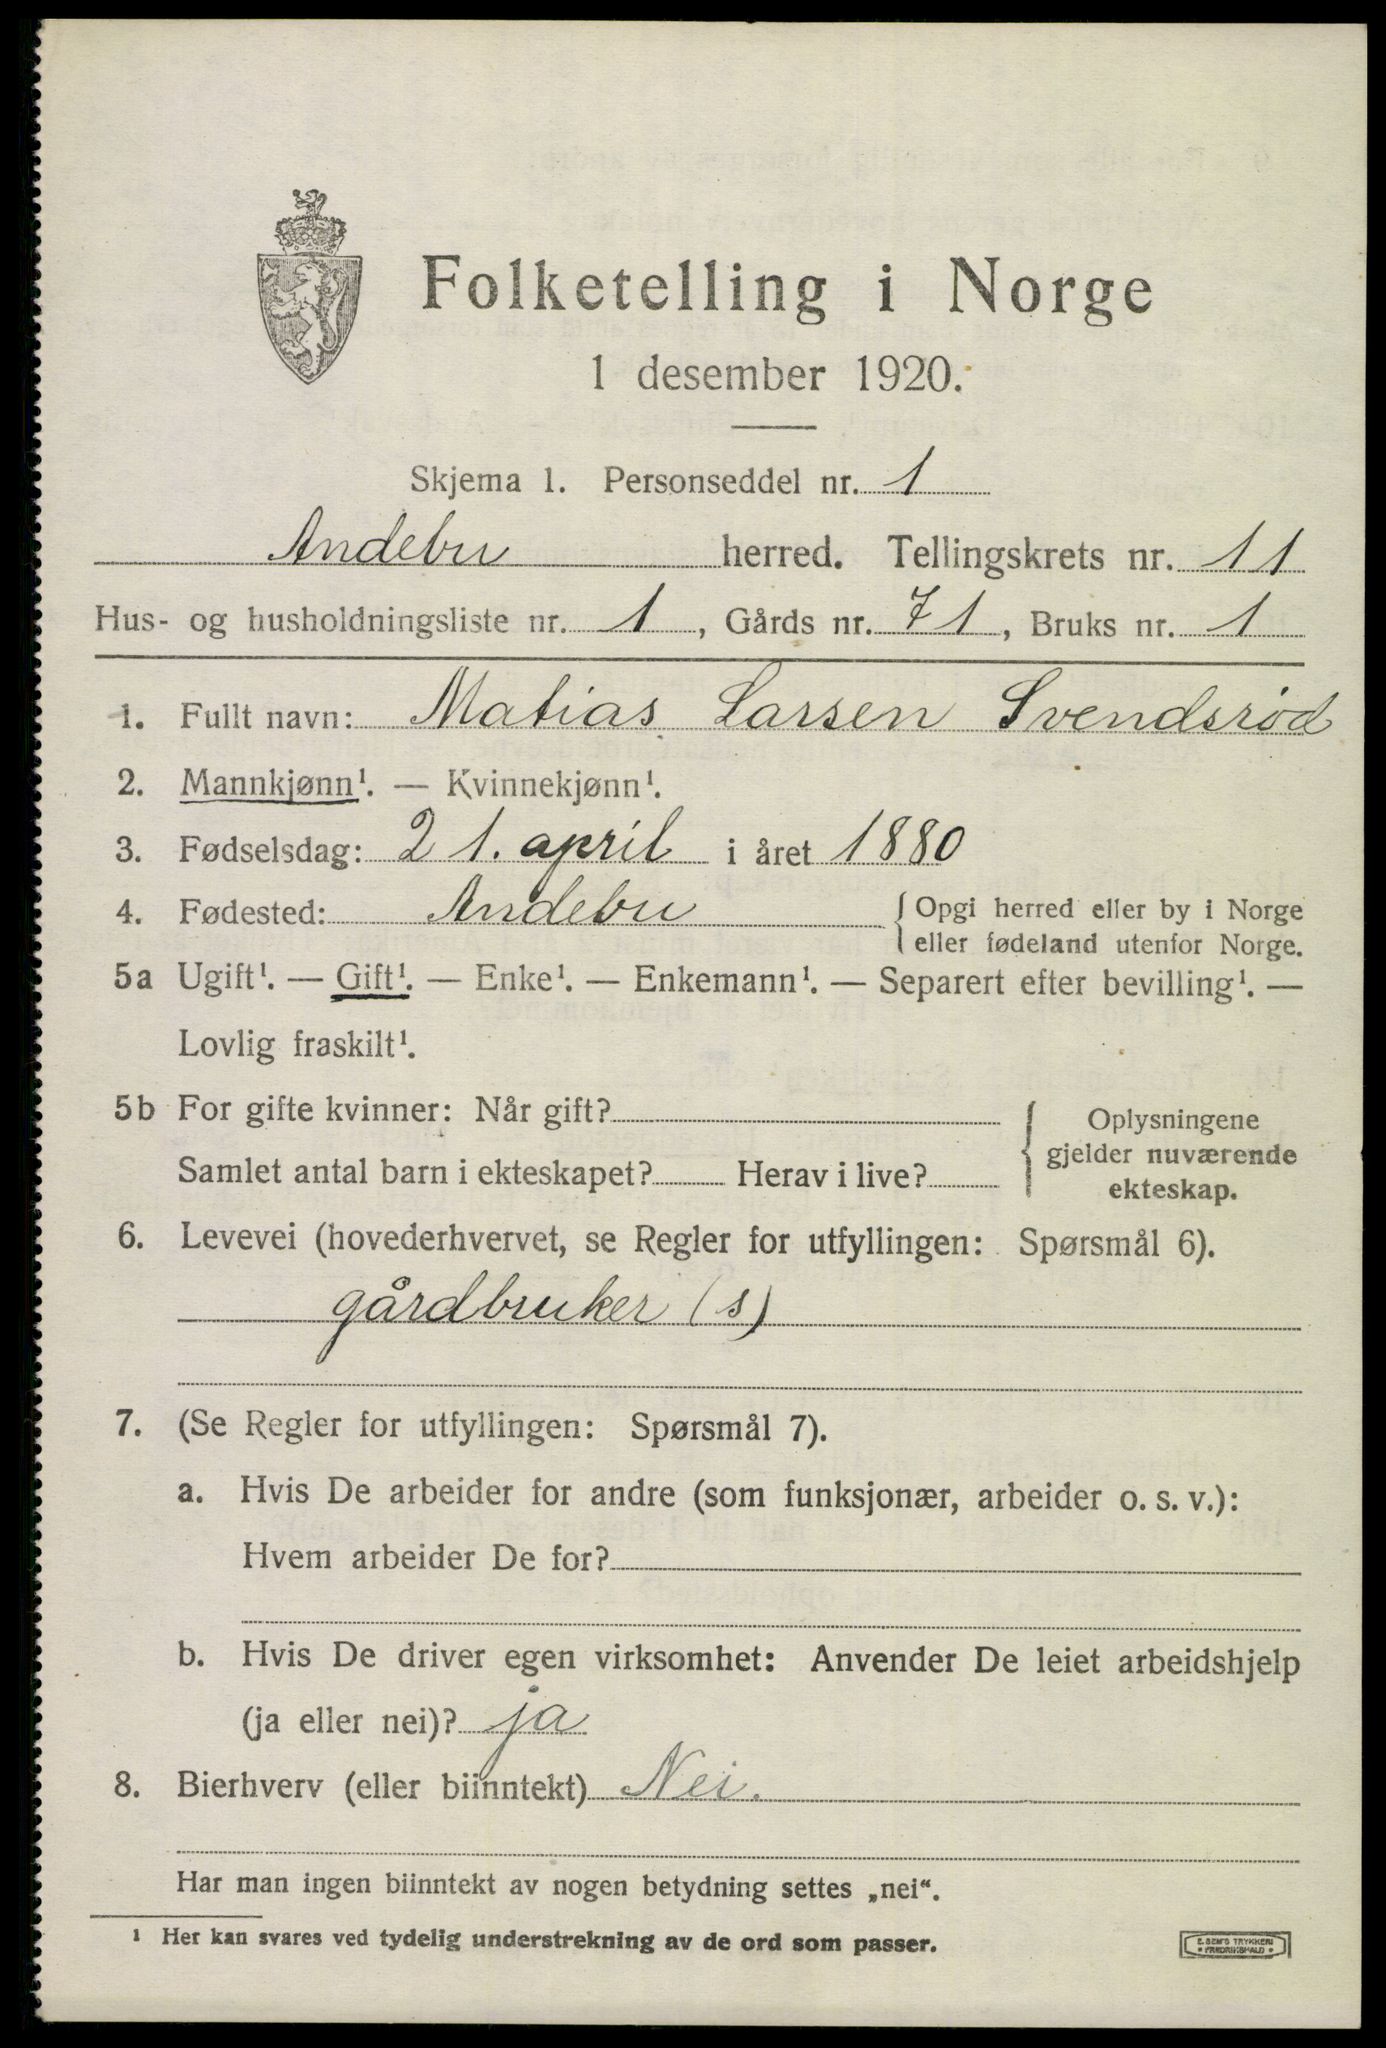 Folketelling i Norge
1 desember 1920.
Skjema 1. Personseddel nr. 1
Andebu herred. Tellingskrets nr. 11
Hus- og husholdningsliste nr. 1, Gårds nr. 71, Bruks nr. 1
1. Fullt navn: Matias Larsen Svendsrød
2. Mannkjønn¹. — Kvinnekjønn¹.
3. Fødselsdag: 21. april i året 1880
4. Fødested: Andebu { Opgi herred eller by i Norge
eller fødeland utenfor Norge.
5a Ugift¹. — Gift¹. — Enke¹. — Enkemann¹. — Separert efter bevilling¹. —
Lovlig fraskilt¹.
5b For gifte kvinner: Når gift?
Samlet antal barn i ekteskapet? Herav i live?
Oplysningene
gjelder nuværende
ekteskap.
6. Levevei (hovederhvervet, se Regler for utfyllingen: Spørsmål 6).
gårdbruker (s)
7. (Se Regler for utfyllingen: Spørsmål 7).
a. Hvis De arbeider for andre (som funksjonær, arbeider o. s. v.):
Hvem arbeider De for?
b. Hvis De driver egen virksomhet: Anvender De leiet arbeidshjelp
(ja eller nei)? ja
8. Bierhverv (eller biinntekt) Nei.
Har man ingen biinntekt av nogen betydning settes „nei“.
¹ Her kan svares ved tydelig understrekning av de ord som passer.
E. SEM'S TRYKKERI
• FREDRIKSHALD •